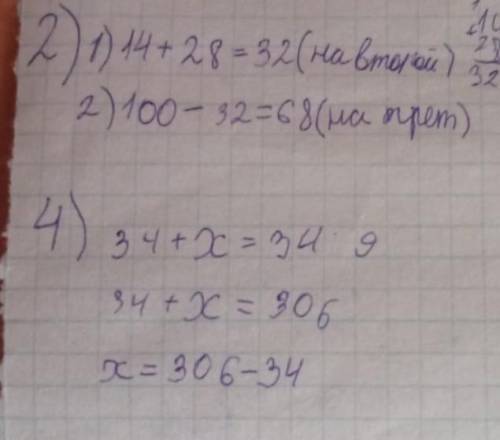 2) 1) 14 + 28 = 32 (на второй)
2) 100 - 32 = 68 (на трет)
4) 34 + x = 34 · 9
34 + x = 306
x = 306 - 34